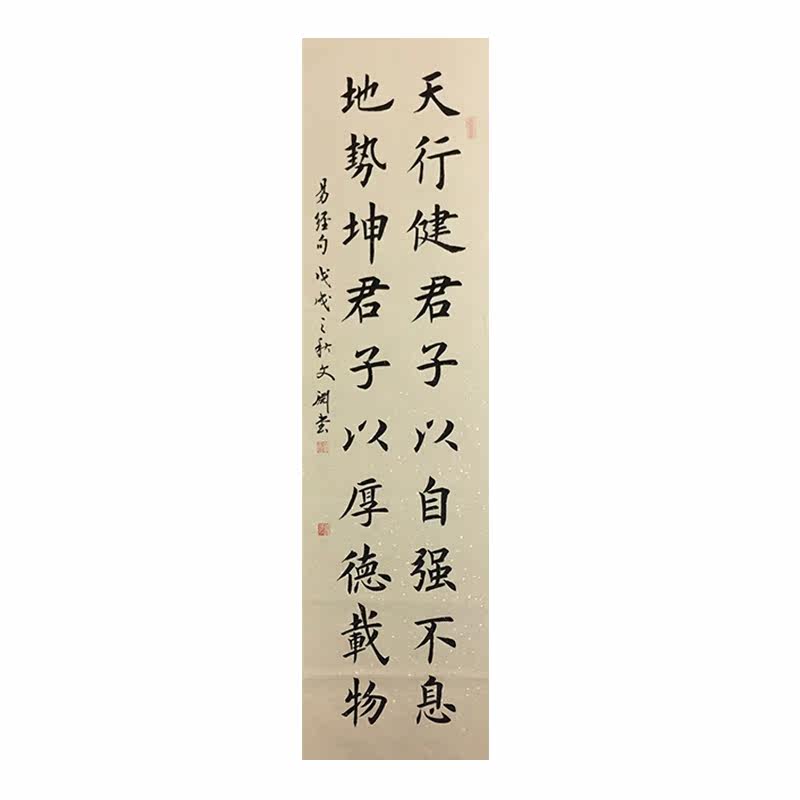 天行健君子以自强不息
地勢坤君子以厚德載物
易经句戊戌之秋文闲书